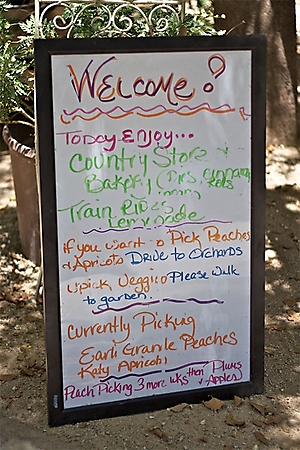 Welcome!
Today Enjoy...
Country Store +
Bakery (Pies, cinnamon
Rolls
Train Rides
Lemonade
if you want to Pick Peaches
+ Apricots Drive to Orchards
Upick Veggies Please Walk
to garden.
Currently Picking
Earli Grande Peaches
Katy Apricots
Peach Picking 3 more wks then Plums
+ Apples